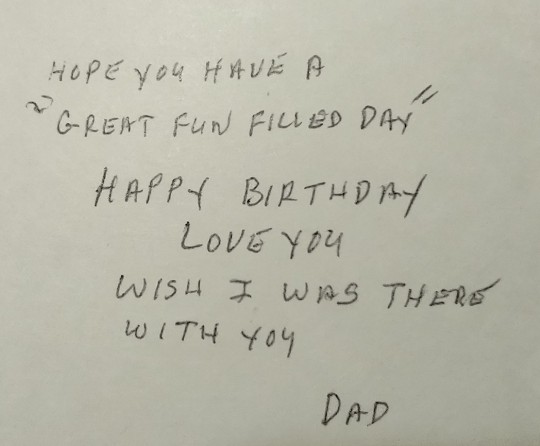 HOPE YOU HAVE A
"GREAT FUN FILLED DAY"
HAPPY BIRTHDAY
LOVE YOU
WISH I WAS THERE
WITH YOU
DAD